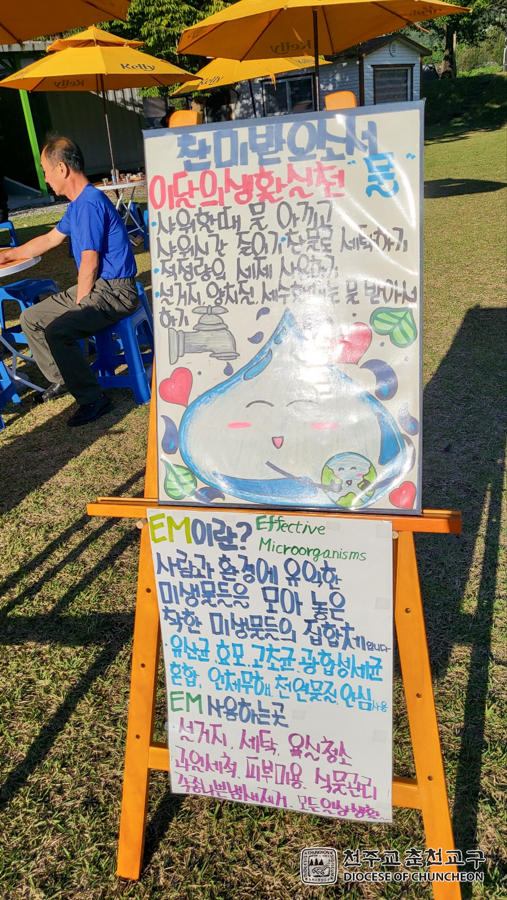 Kelly
Kelly
찬미받으소서
이달의 생활실천 "물"
·샤워할때 물 아끼고
샤워시간 줄이기·찬물로 세탁하기
·적정량의 세제 사용하기
·설거지, 양치질, 세수할때는 물 받아서
하기
EM이란? Effective
Microorganisms
사람과 환경에 유익한
미생물들을 모아 놓은
착한 미생물들의 집합체입니다
·유산균, 효모, 고초균, 광합성세균
혼합. 인체무해, 천연물질, 안심사용
EM 사용하는곳
·설거지, 세탁, 욕실청소
과일세척, 피부미용, 식물관리
모든일상생활
천주교 춘천교구
DIOCESE OF CHUNCHEON